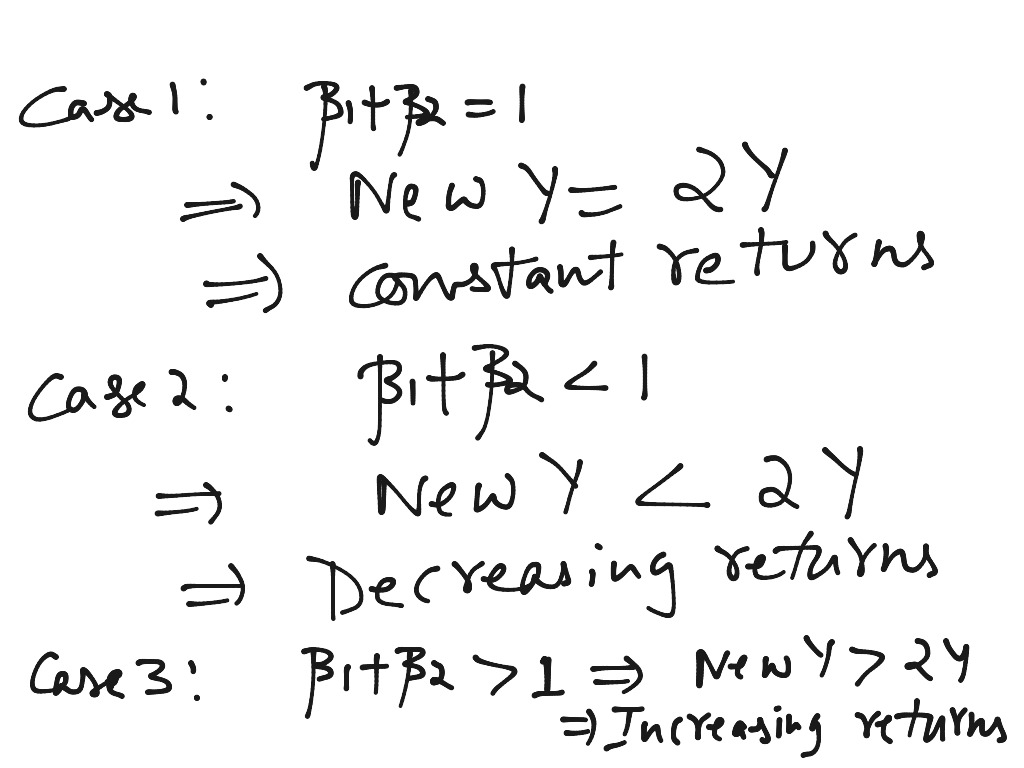 Case 1: β1+β2 = 1
⇒ New Y = 2Y
⇒ Constant returns
Case 2: β1+β2 < 1
⇒ New Y < 2Y
⇒ Decreasing returns
Case 3: β1+β2 > 1 ⇒ New Y > 2Y
⇒ Increasing returns